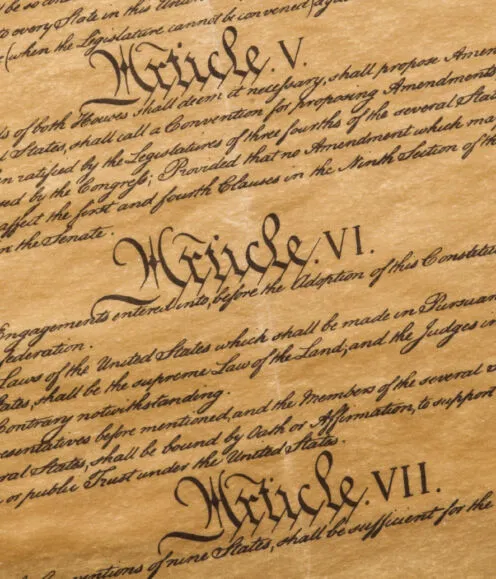 to every State in this Union
(when the Legislature cannot be convened) against
Article. V.
of both Houses shall deem it necessary, shall propose Amen
States, shall call a Convention for proposing Amendments
ratified by the Legislatures of three fourths of the several Stat
by the Congress; Provided that no Amendment which ma
affect the first and fourth Clauses in the Ninth Section of the
the Senate.
Article. VI.
Engagements entered into, before the Adoption of this Constitut
federation.
Laws of the United States which shall be made in Pursuan
ates, shall be the supreme Law of the Land; and the Judges in
Contrary notwithstanding.
resentatives before mentioned, and the Members of the several
ral States, shall be bound by Oath or Affirmation, to support
or public Trust under the United States.
Article. VII.
ventions of nine States, shall be sufficient for the